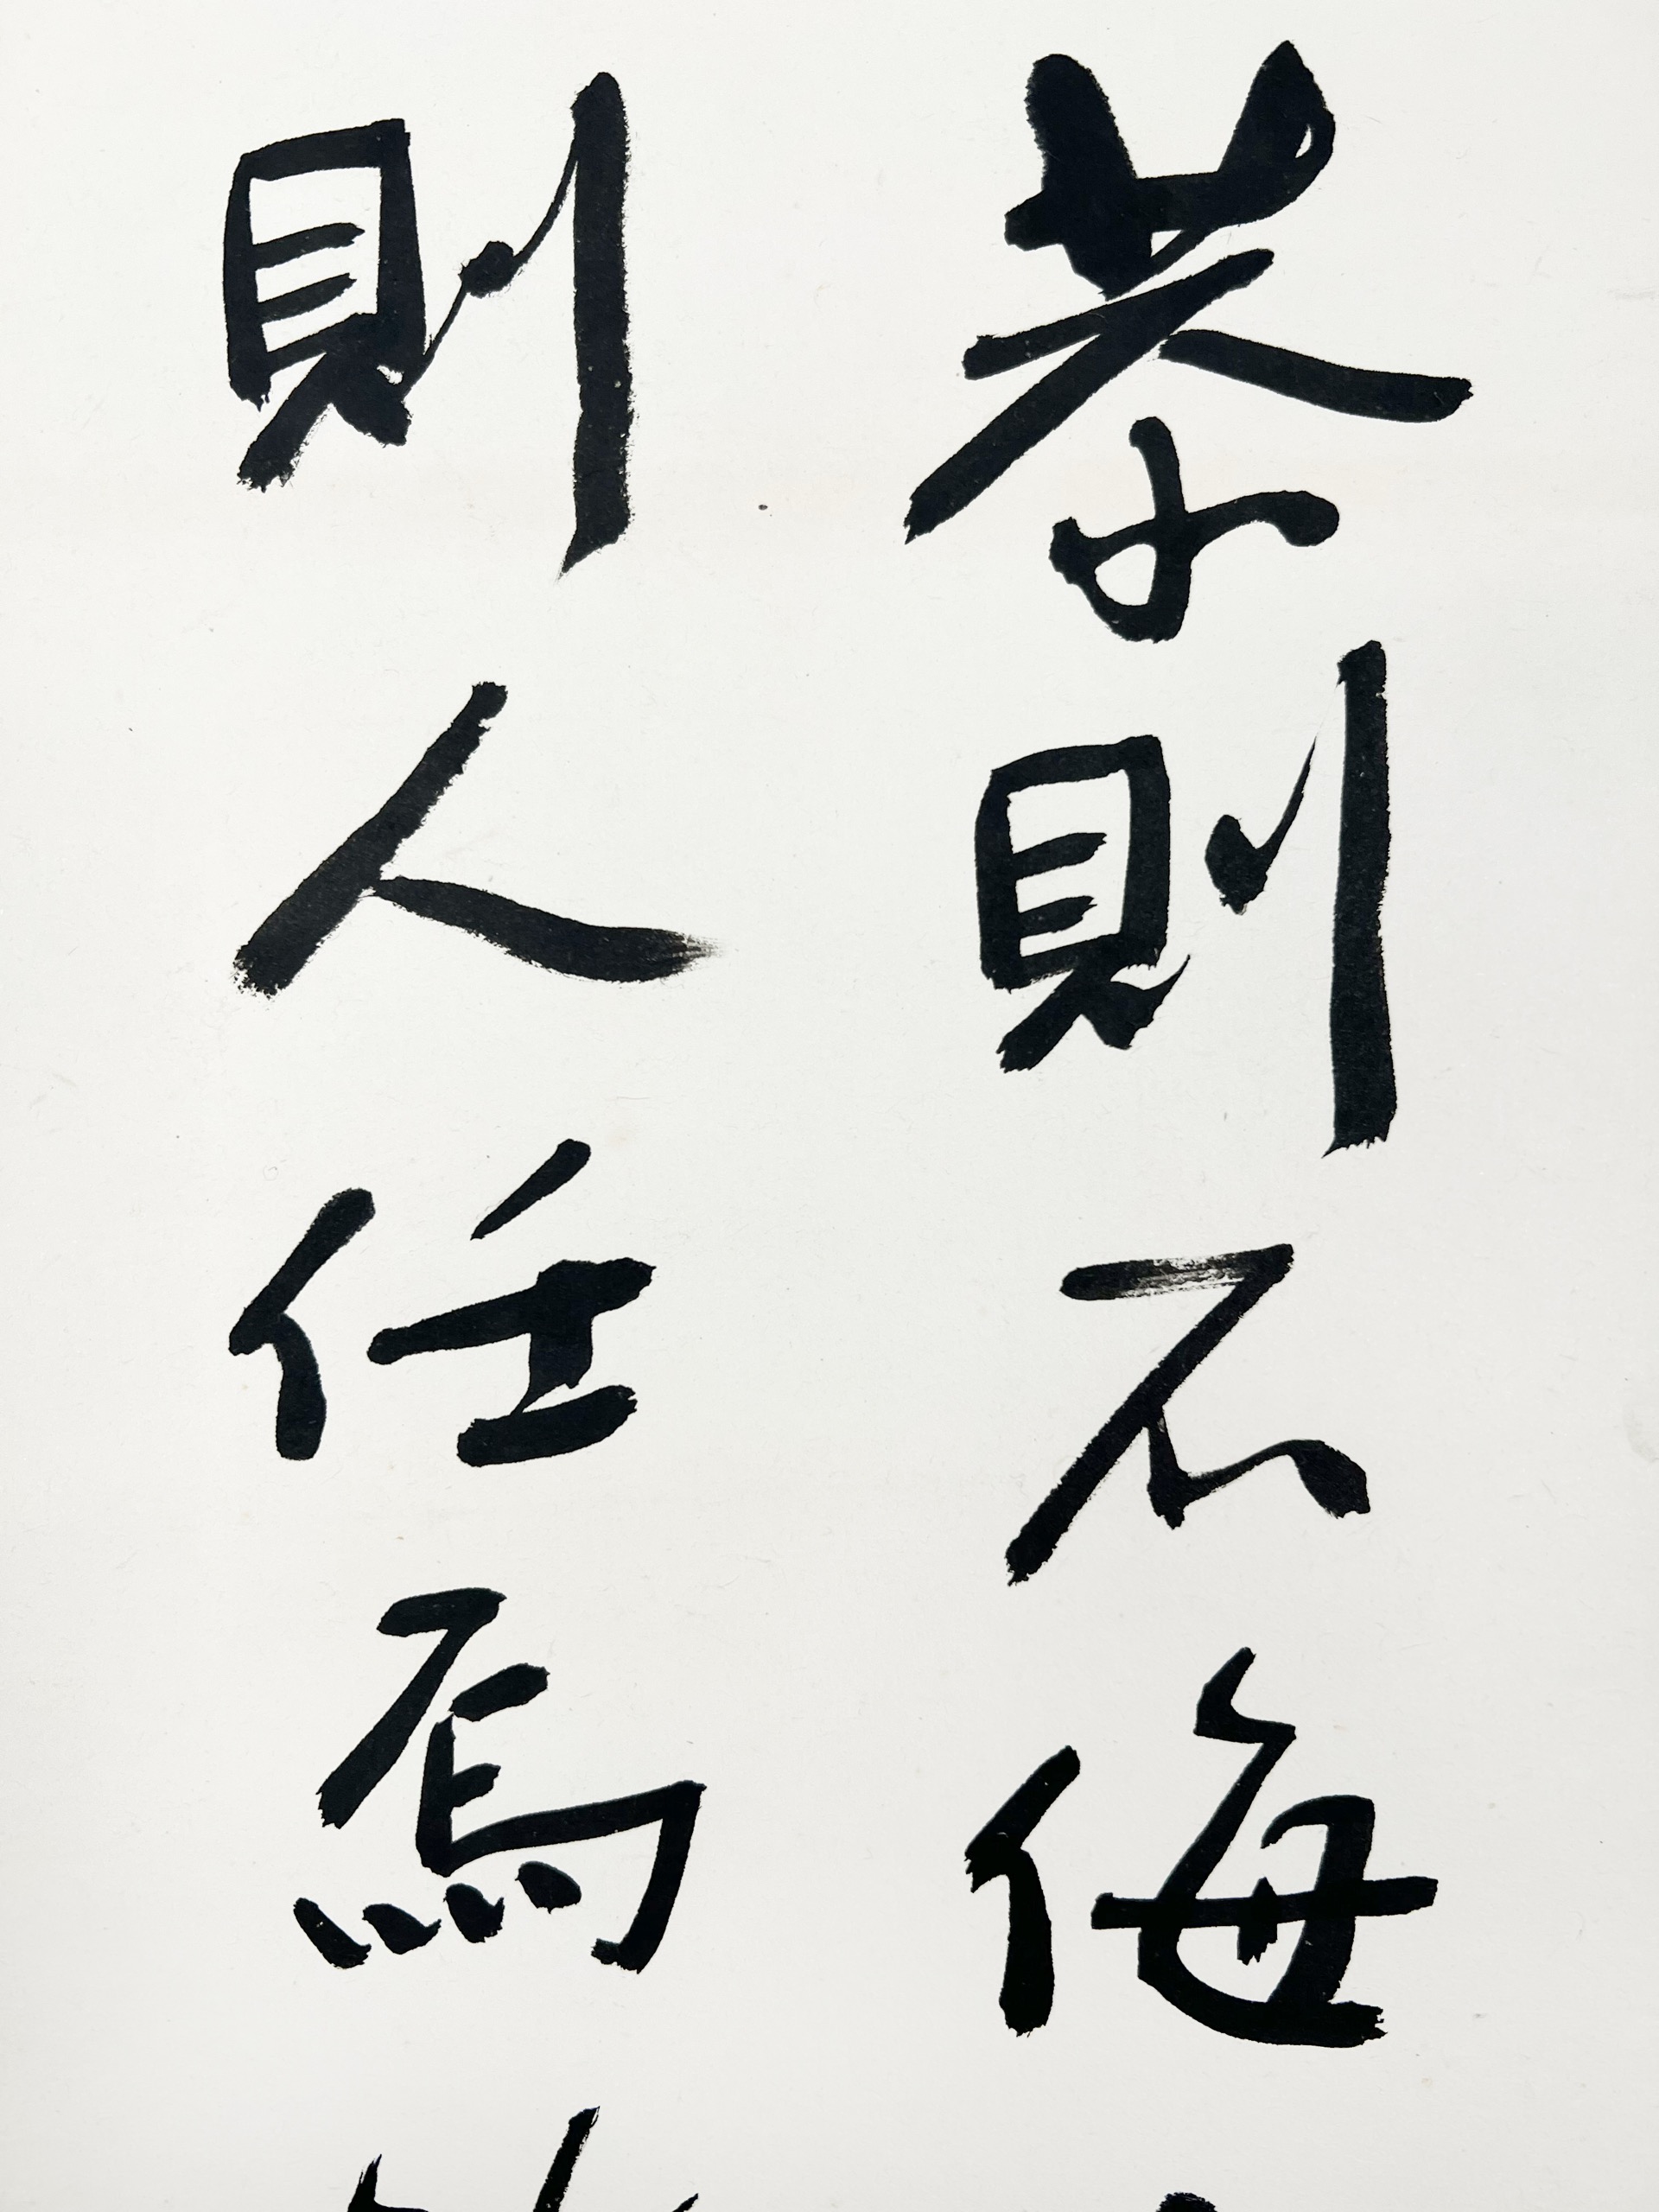 恭則不侮
則人任焉